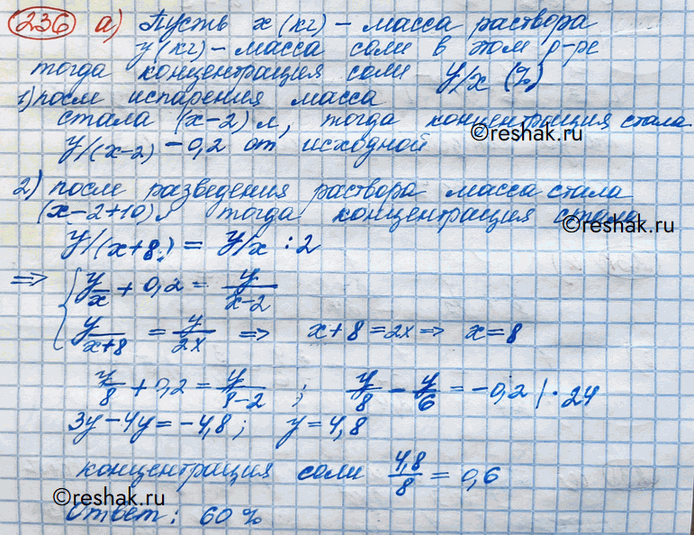 236 а) Пусть x (кг) – масса раствора
y (кг) – масса соли в этом р-ре
тогда концентрация соли y/x (%)
1) после испарения масса
стала (x-2) л, тогда концентрация стала
y/(x-2) – 0,2 от исходной
©reshak.ru
2) после разведения раствора масса стала
(x-2+10), тогда концентрация стала
©reshak.ru
y/(x+8) = y/x : 2
=> { y/x + 0,2 = y/(x-2)
y/(x+8) = y/2x => x+8=2x => x=8
y/8 + 0,2 = y/(8-2) ; y/8 - y/6 = -0,2 | · 24
3y-4y=-4,8; y=4,8
концентрация соли 4,8/8 = 0,6
©reshak.ru
Ответ: 60%